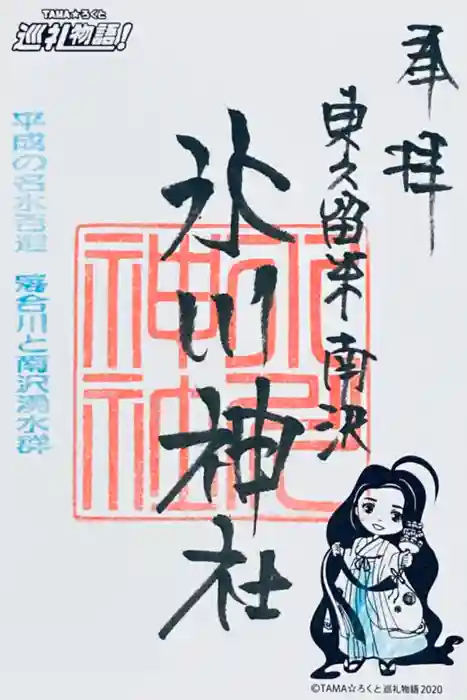 TAMA☆ろくと
巡礼物語!
奉拝
東久留米南沢
氷川神社
氷川神社
平成の名水百選 落合川と南沢湧水群
©TAMA☆ろくと巡礼物語2020